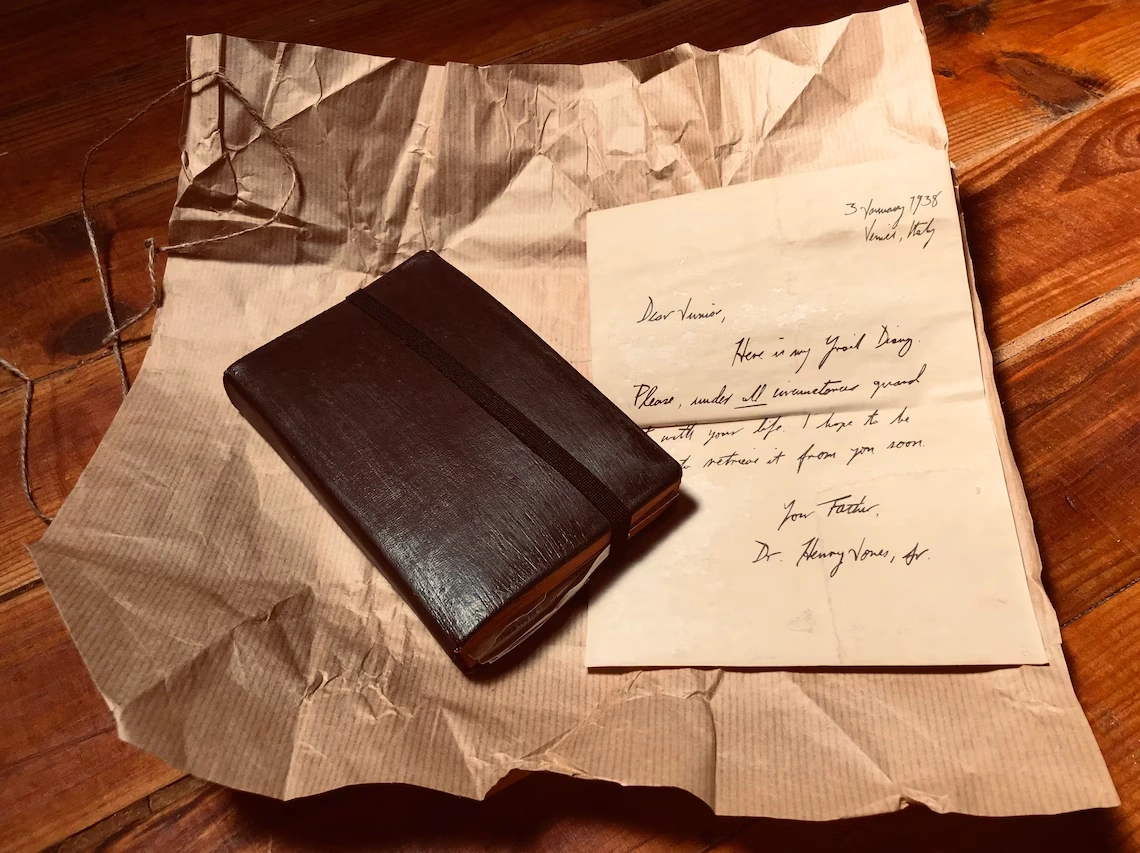 3 January 1938
Venice, Italy
Dear Junior,
Here is my Grail Diary.
Please, under all circumstances guard
with your life. I hope to be
to retrieve it from you soon.
Your Father,
Dr. Henry Jones, Sr.